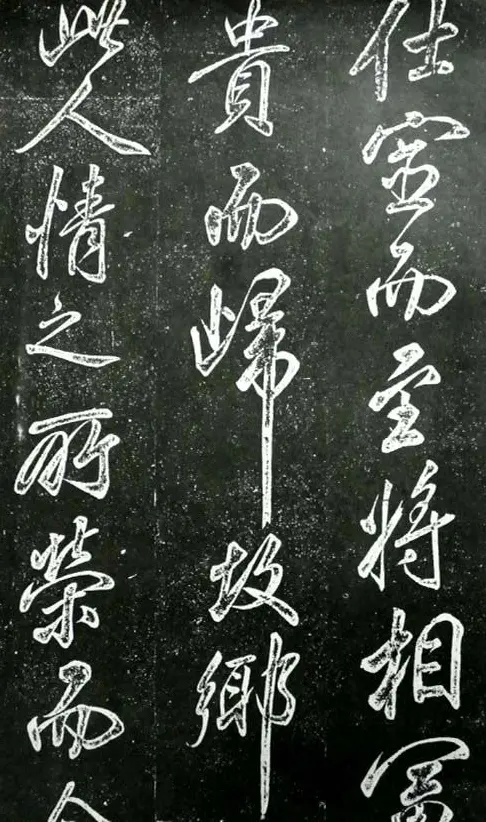 仕宦而至將相富
貴而歸故鄉
此人情之所榮而今